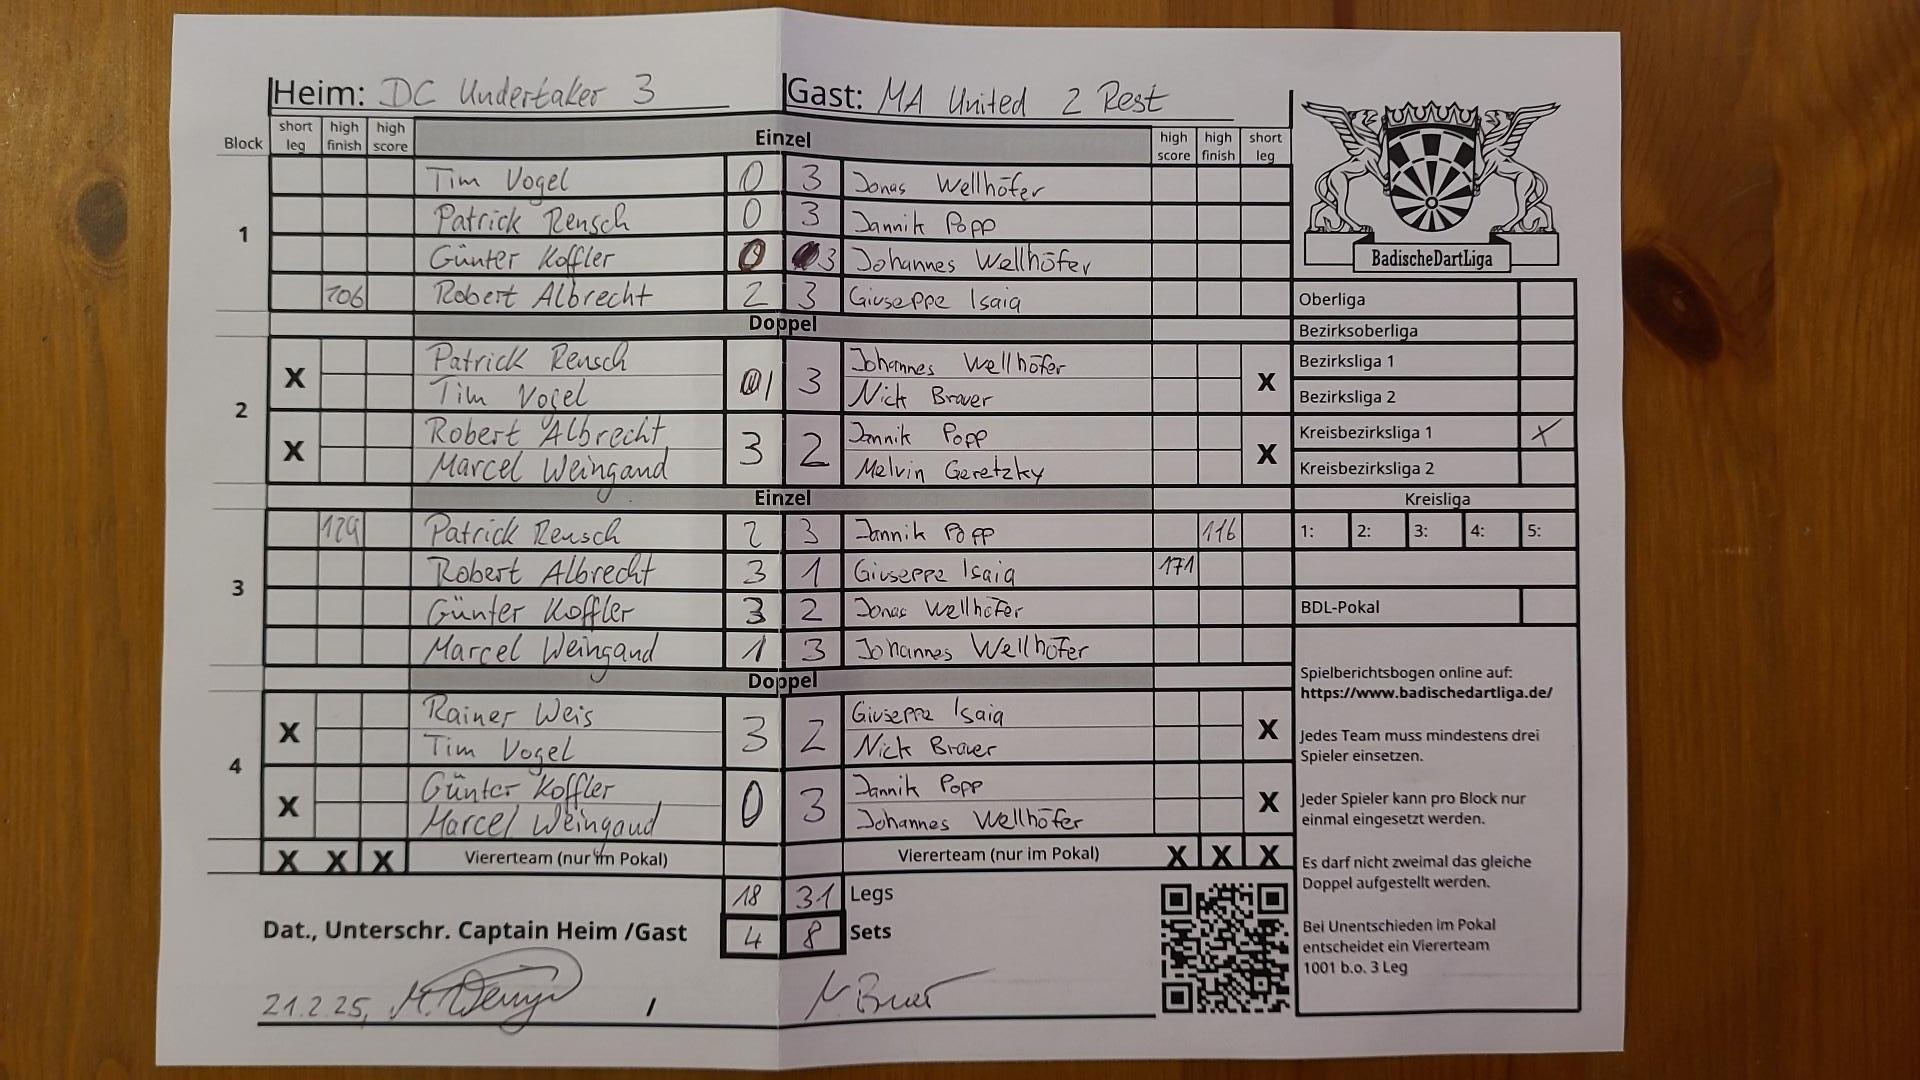 Heim: DC Undertaker 3 Gast: MA United 2 Rest
Block short leg high finish high score Einzel high score high finish short leg
1
Tim Vogel 0 3 Jonas Wellhöfer
Patrick Rensch 0 3 Jannik Popp
Günter Koffler 0 3 Johannes Wellhöfer
106 Robert Albrecht 2 3 Giuseppe Isaia
Doppel
2
Patrick Rensch Johannes Wellhöfer
X 1 3 X
Tim Vogel Nick Brauer
Robert Albrecht Jannik Popp
X 3 2 X
Marcel Weingand Melvin Geretzky
Einzel
3
129 Patrick Rensch 2 3 Jannik Popp 116
Robert Albrecht 3 1 Giuseppe Isaia 171
Günter Koffler 3 2 Jonas Wellhöfer
Marcel Weingand 1 3 Johannes Wellhöfer
Doppel
4
Rainer Weis Giuseppe Isaia
X 3 2 X
Tim Vogel Nick Brauer
Günter Koffler Jannik Popp
X 0 3 X
Marcel Weingand Johannes Wellhöfer
X X X Viererteam (nur im Pokal) Viererteam (nur im Pokal) X X X
18 31 Legs
Dat., Unterschr. Captain Heim /Gast 4 8 Sets
21.2.25, /
BadischeDartLiga
Oberliga
Bezirksoberliga
Bezirksliga 1
Bezirksliga 2
Kreisbezirksliga 1 X
Kreisbezirksliga 2
Kreisliga
1: 2: 3: 4: 5:
BDL-Pokal
Spielberichtsbogen online auf:
https://www.badischedartliga.de/
Jedes Team muss mindestens drei
Spieler einsetzen.
Jeder Spieler kann pro Block nur
einmal eingesetzt werden.
Es darf nicht zweimal das gleiche
Doppel aufgestellt werden.
Bei Unentschieden im Pokal
entscheidet ein Viererteam
1001 b.o. 3 Leg